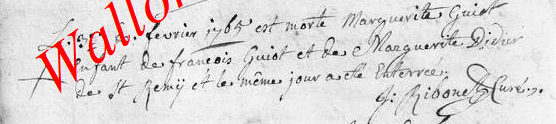 février 1765 est morte Marguerite Guiot
Enfant de francois Guiot et de Marguerite Didier
de St Remij et le même jour a été Enterrée.
j. Ridonet Curé.
Wallo